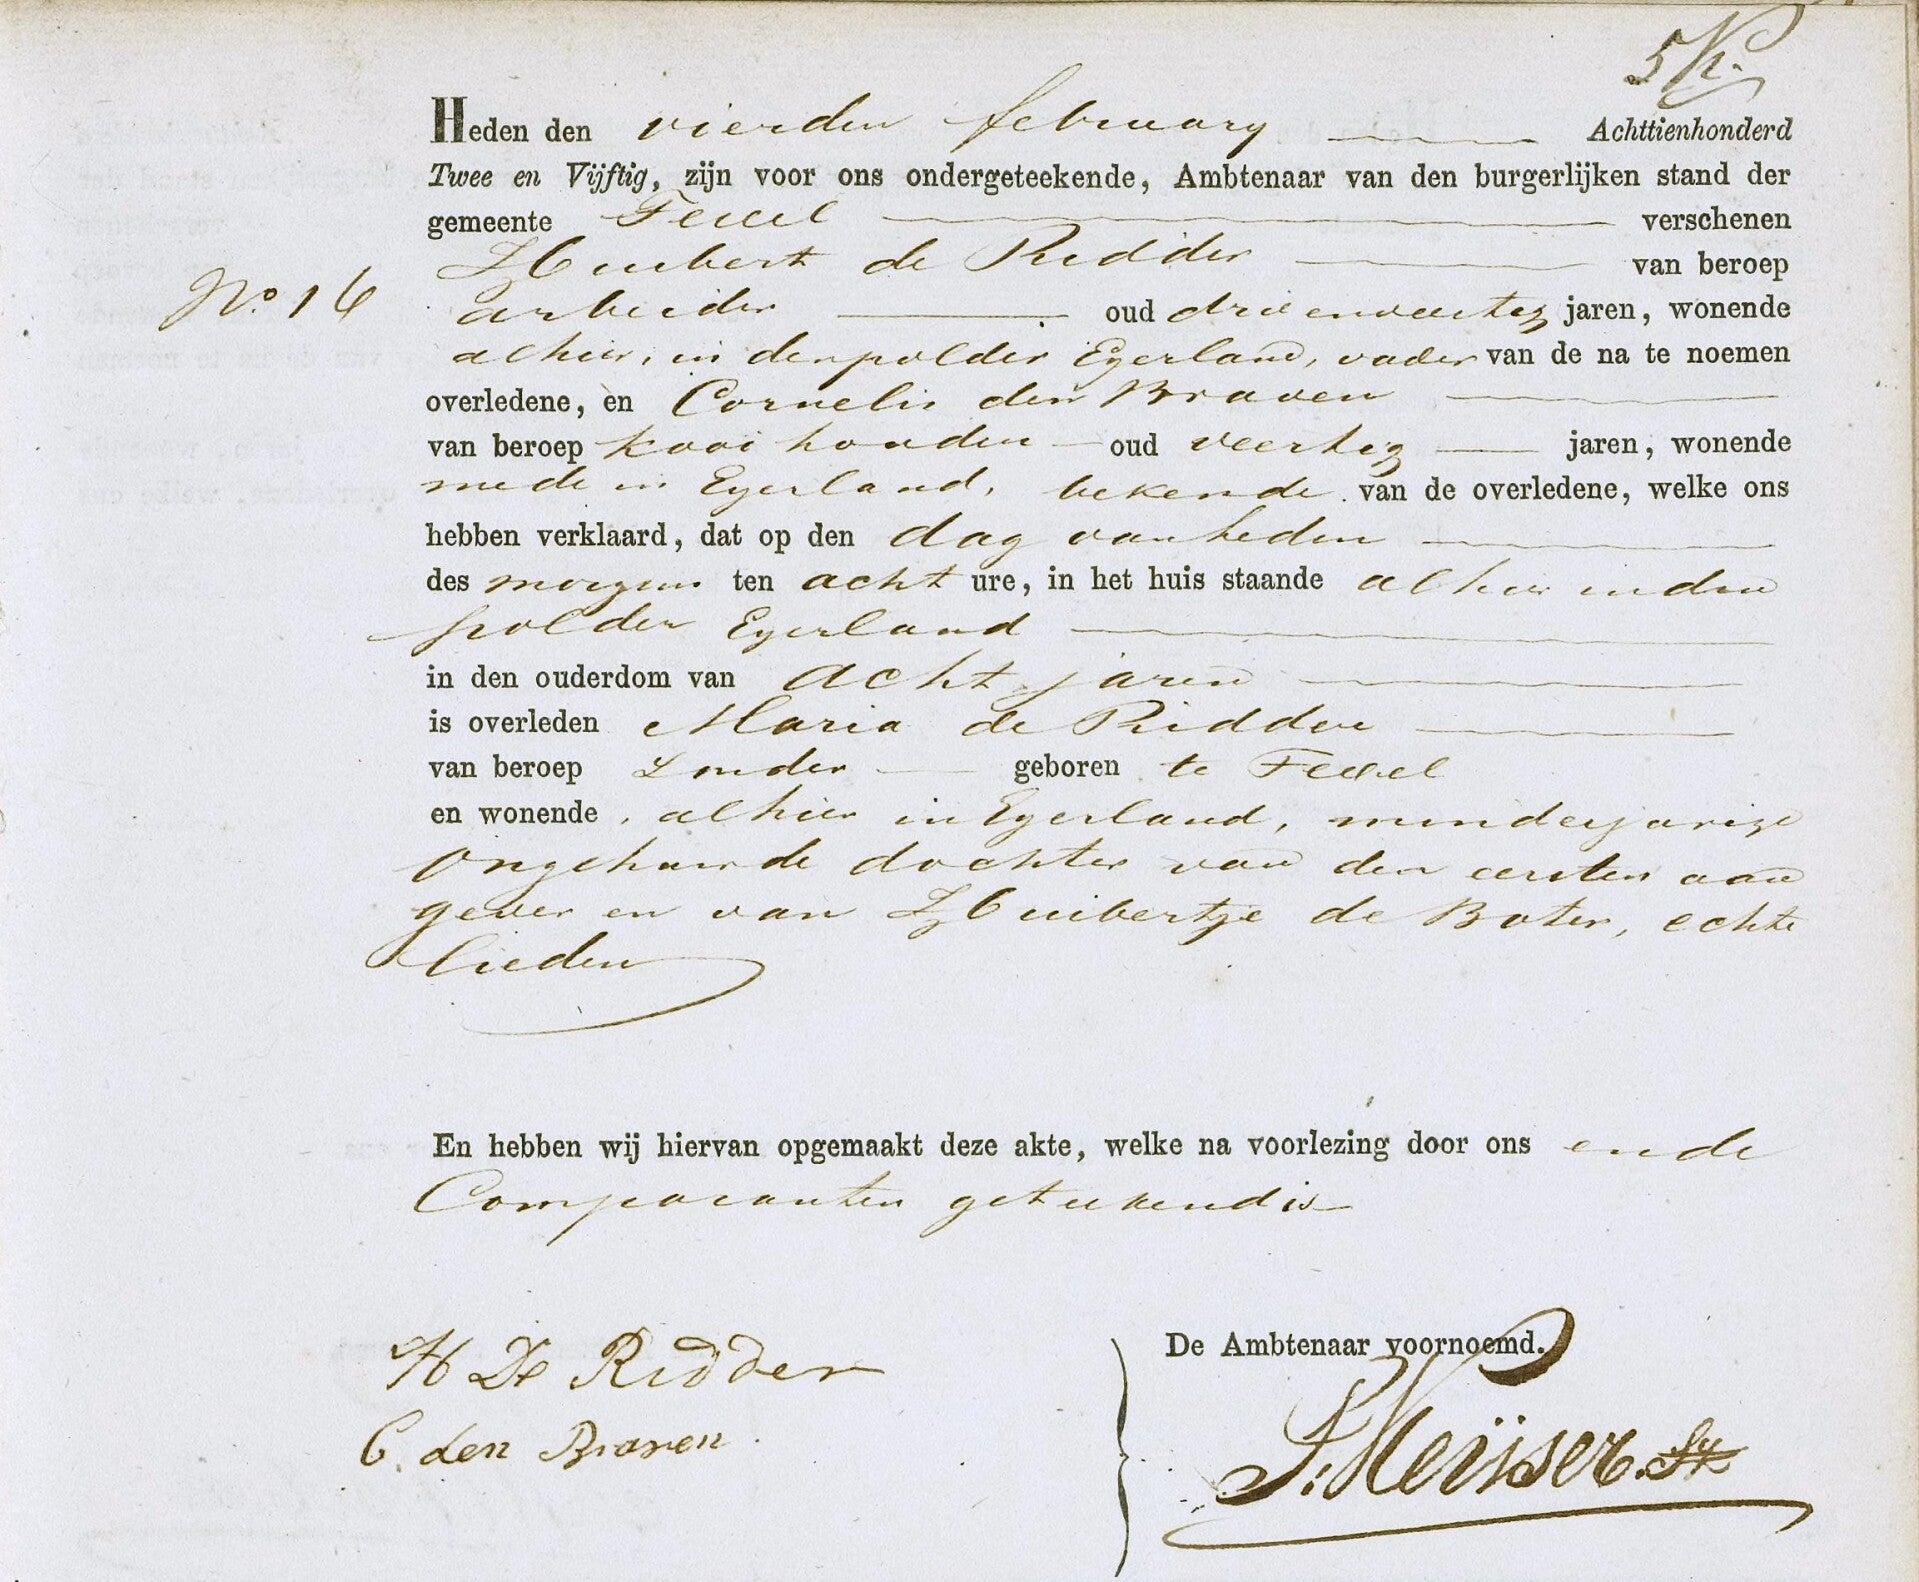 5
Heden den vierden february Achttienhonderd
Twee en Vijftig, zijn voor ons ondergeteekende, Ambtenaar van den burgerlijken stand der
gemeente Texel verschenen
Huibert de Ridder van beroep
No. 16 arbeider oud drie en veertig jaren, wonende
alhier, in den polder Eyerland, vader van de na te noemen
overledene, en Cornelis den Braven
van beroep kooi houder oud veertig jaren, wonende
mede in Eyerland, bekende van de overledene, welke ons
hebben verklaard, dat op den dag van heden
des morgens ten acht ure, in het huis staande alhier in den
polder Eyerland
in den ouderdom van acht jaren
is overleden Maria de Ridder
van beroep zonder geboren te Texel
en wonende, alhier in Eyerland, minderjarige
ongehuwde dochter van den eersten aan
gever en van Huibertje de Boter, echte
lieden
En hebben wij hiervan opgemaakt deze akte, welke na voorlezing door ons en de
Comparanten geteekend is
De Ambtenaar voornoemd.
H De Ridder
C. den Braven.
Keijser.